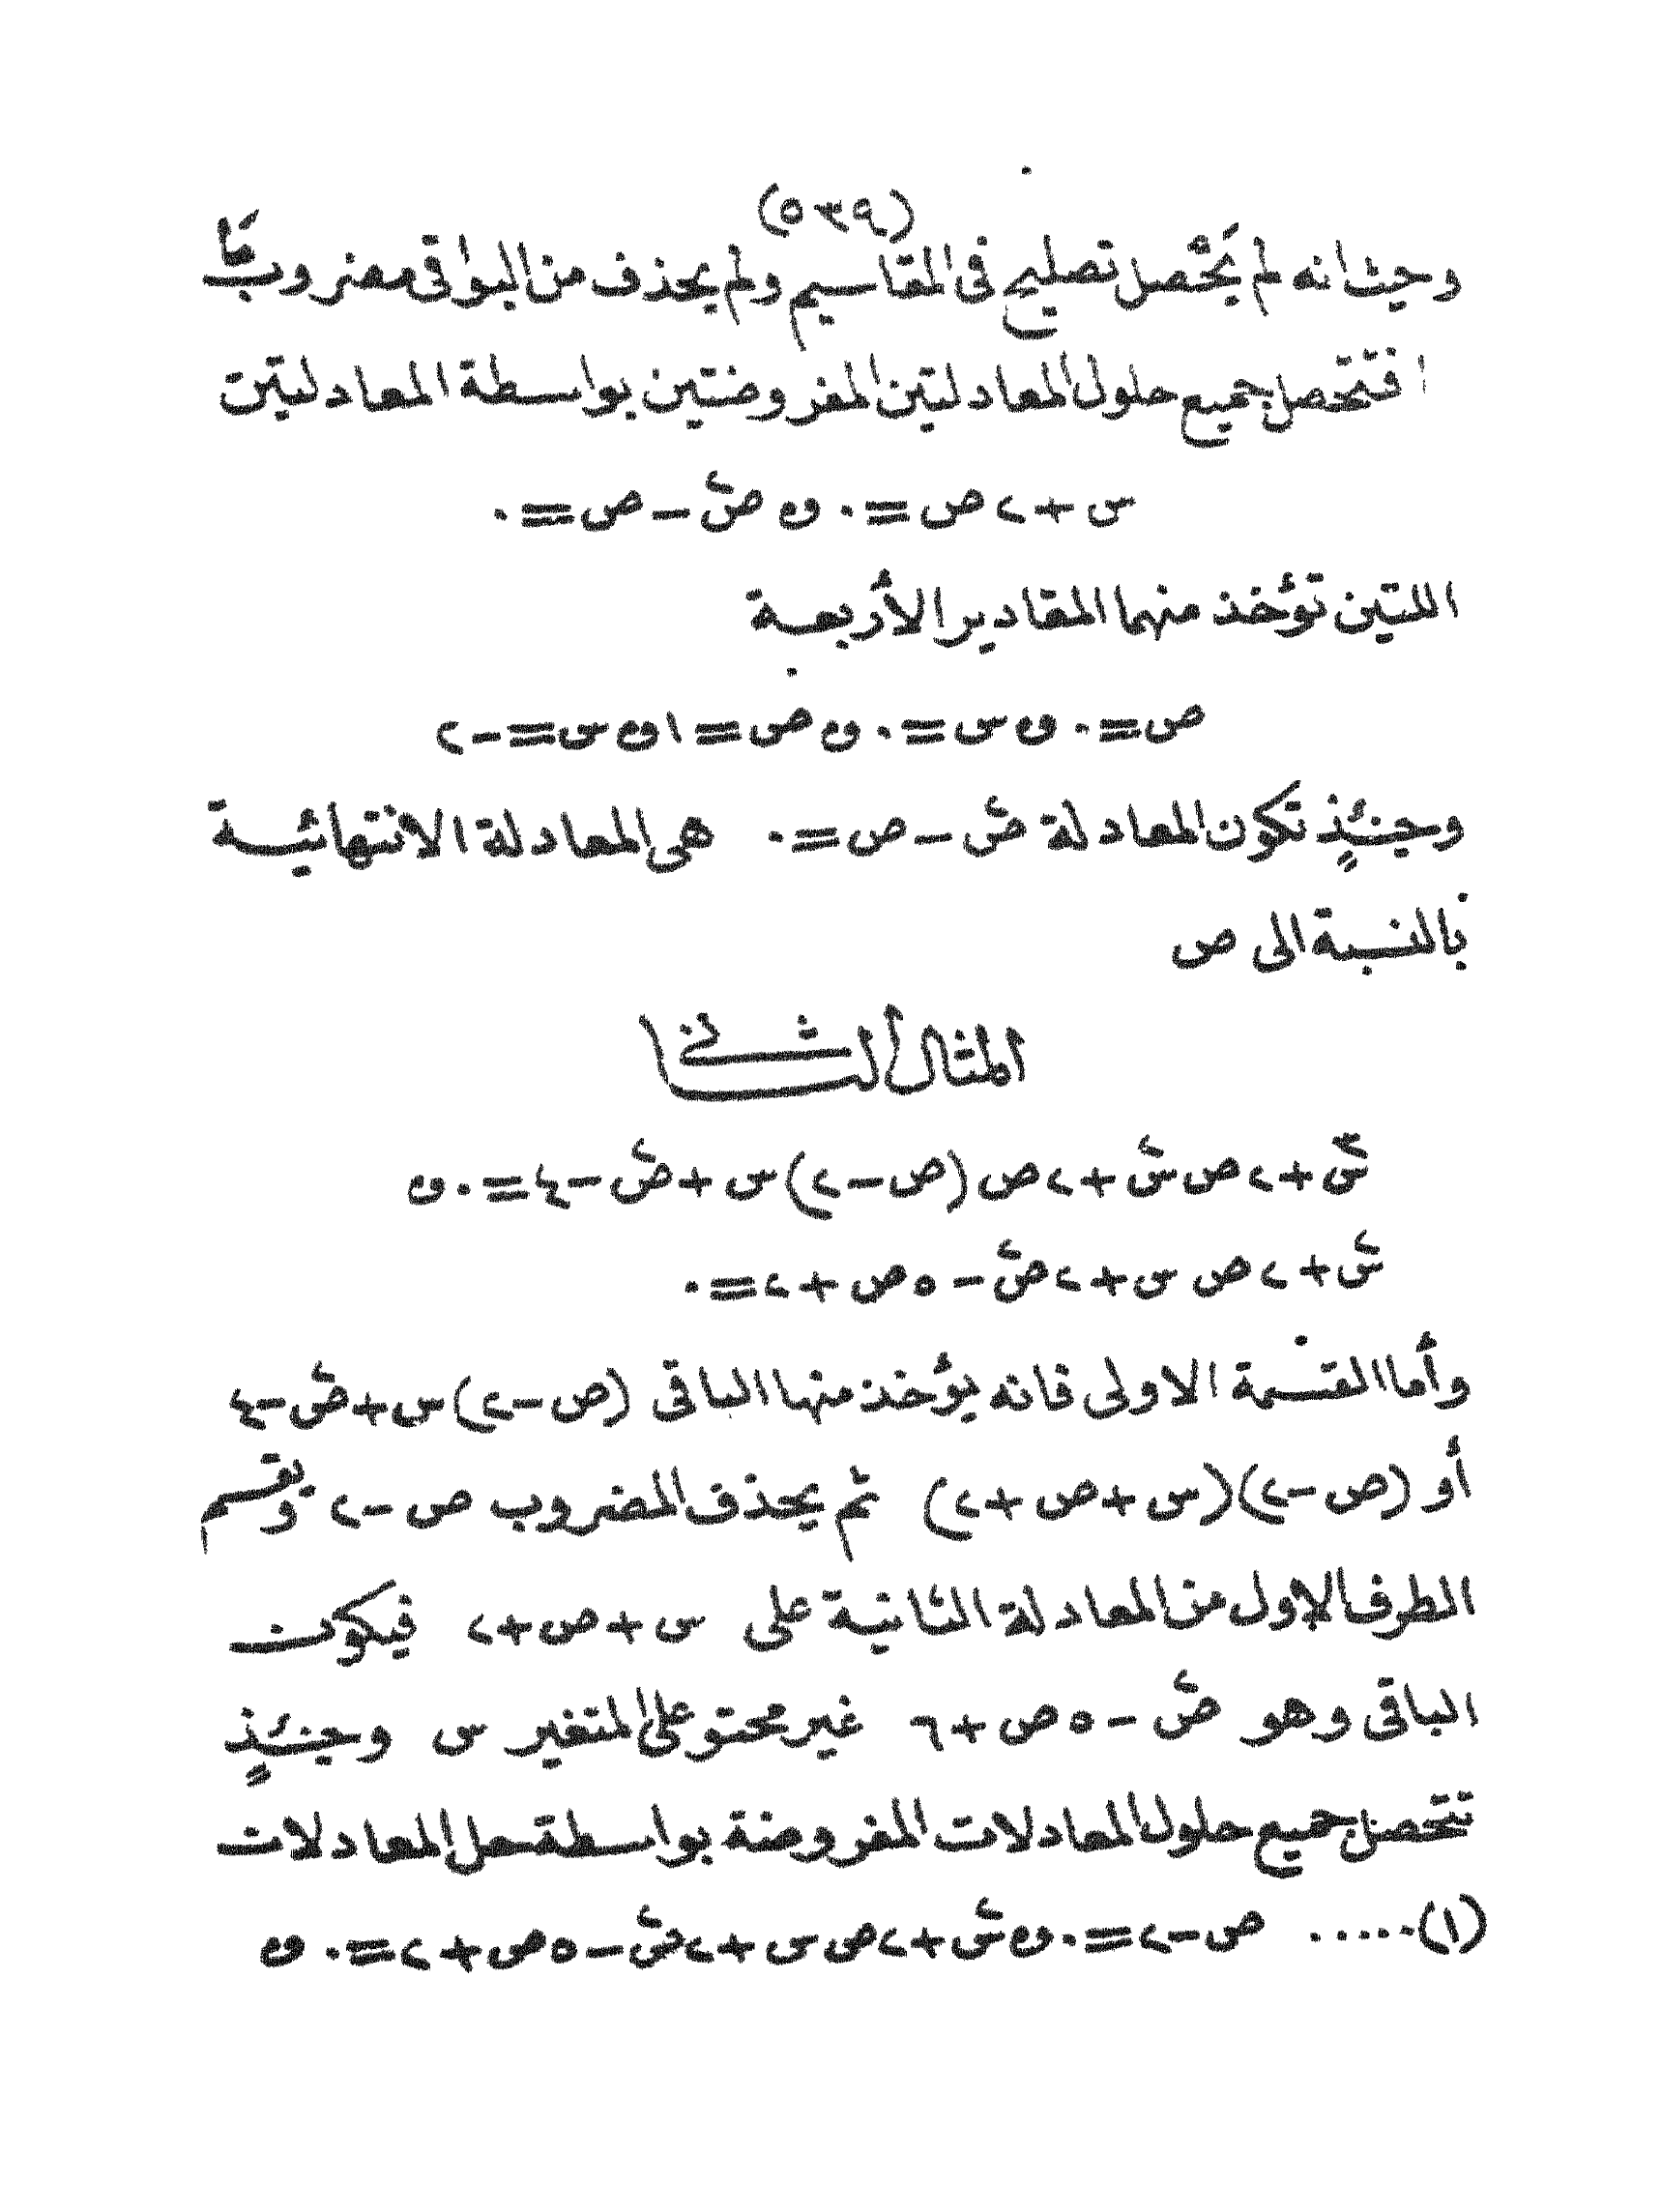 (٥٣٩)
وحيث انه لم يَحْصل تصليح فى المقاسيم ولم يحذف من البواقى مضروب مّا
فتتحصل جميع حلول المعادلتين المفروضتين بواسطة المعادلتين
س + ٢ ص = ٠ و ص٢ − ص = ٠
اللتين تؤخذ منهما المقادير الأربعة
ص = ٠ و س = ٠ و ص = ١ و س = − ٢
وحينئذٍ تكون المعادلة ص٢ − ص = ٠ هى المعادلة الانتهائية
بالنسبة الى ص
المثال الثانى
س٣ + ٢ ص س٢ + ٢ ص (ص − ٢) س + ص٢ − ٤ = ٠ و
س٢ + ٢ ص س + ٢ ص٢ − ٥ ص + ٢ = ٠
وأما القسمة الاولى فانه يؤخذ منها الباقى (ص − ٢) س + ص٢ − ٤
أو (ص − ٢) (س + ص + ٢) ثم يحذف المضروب ص − ٢ ويقسم
الطرف الاول من المعادلة الثانية على س + ص + ٢ فيكون
الباقى وهو ص٢ − ٥ ص + ٦ غير محتو على المتغير س وحينئذٍ
تتحصل جميع حلول المعادلات المفروضة بواسطة حل المعادلات
(١) ..... ص − ٢ = ٠ و س٢ + ٢ ص س + ٢ ص٢ − ٥ ص + ٢ = ٠ و